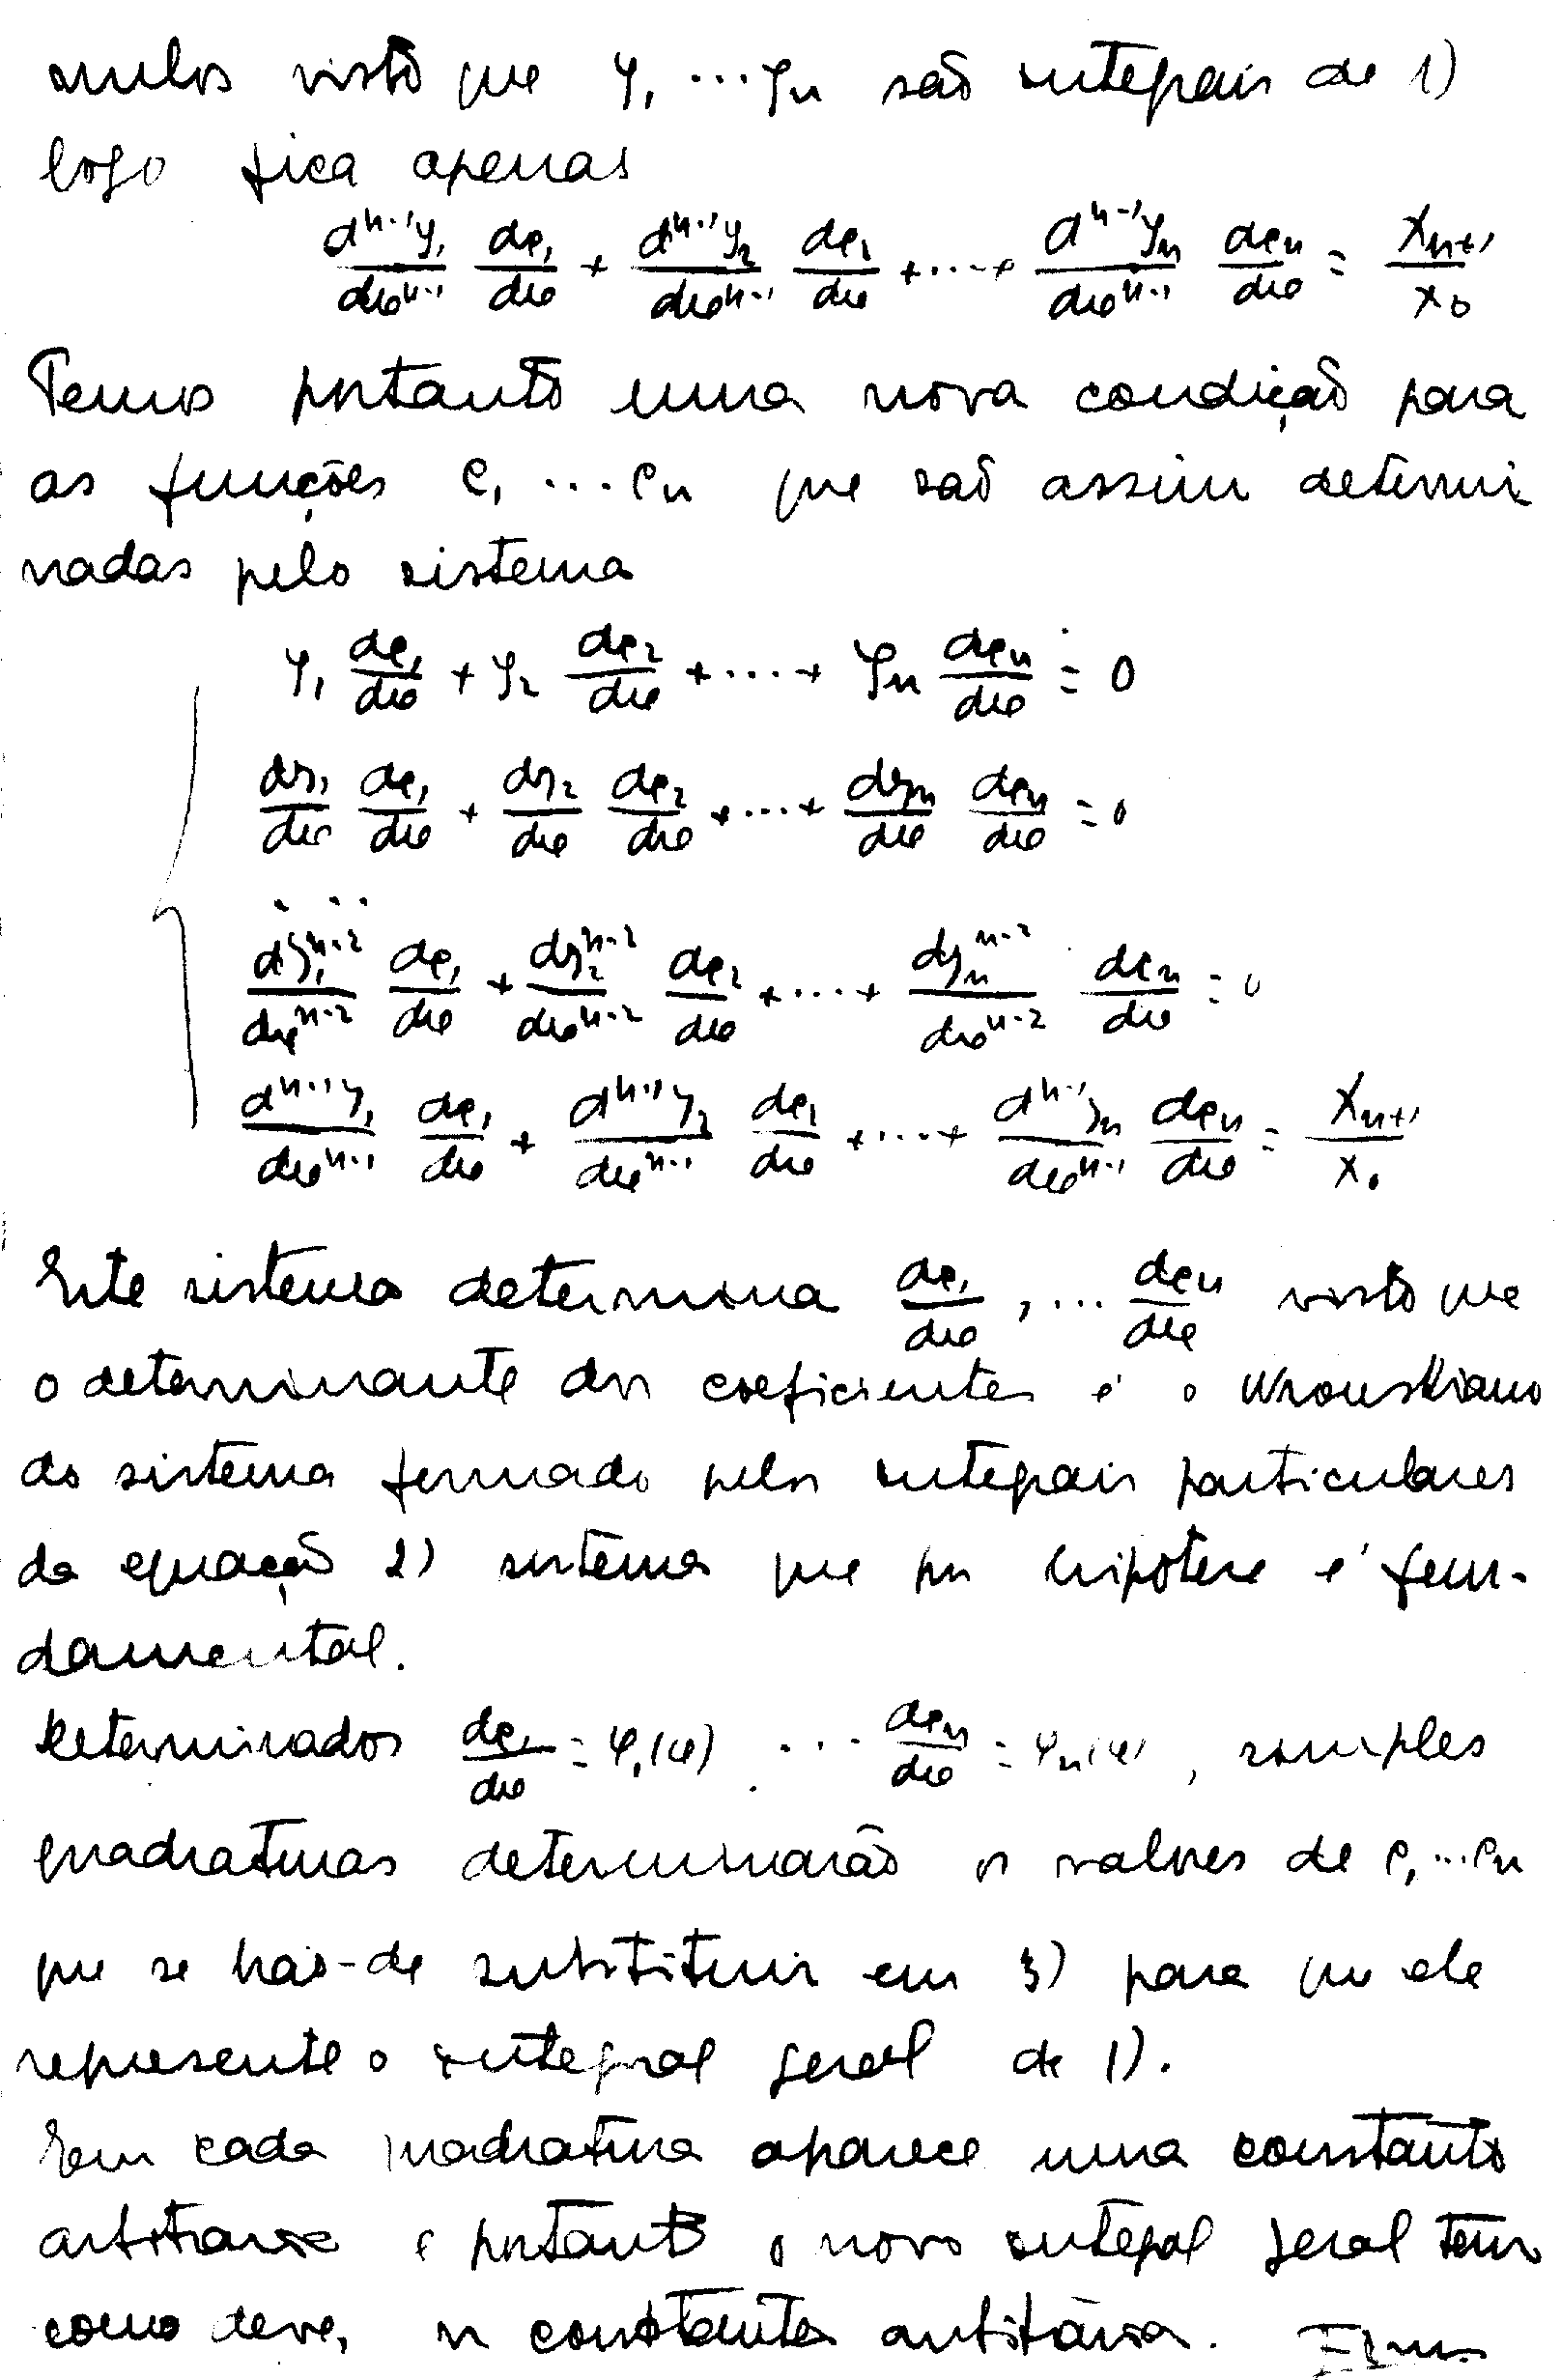 nulos visto que y₁ ... yₙ são integrais de 1)
logo fica apenas
dⁿ⁻¹y₁/dxⁿ⁻¹ dc₁/dx + dⁿ⁻¹y₂/dxⁿ⁻¹ dc₂/dx + .... + dⁿ⁻¹yₙ/dxⁿ⁻¹ dcₙ/dx = Xₙ₊₁/X₀
Temos portanto uma nova condição para
as funções c₁ ... cₙ que são assim determi
nadas pelo sistema
y₁ dc₁/dx + y₂ dc₂/dx + .... + yₙ dcₙ/dx = 0
dy₁/dx dc₁/dx + dy₂/dx dc₂/dx + .... + dyₙ/dx dcₙ/dx = 0
. . .
dy₁ⁿ⁻²/dxⁿ⁻² dc₁/dx + dy₂ⁿ⁻²/dxⁿ⁻² dc₂/dx + .... + dyₙⁿ⁻²/dxⁿ⁻² dcₙ/dx = 0
dⁿ⁻¹y₁/dxⁿ⁻¹ dc₁/dx + dⁿ⁻¹y₂/dxⁿ⁻¹ dc₂/dx + .... + dⁿ⁻¹yₙ/dxⁿ⁻¹ dcₙ/dx = Xₙ₊₁/X₀
Este sistema determina dc₁/dx , ... dcₙ/dx visto que
o determinante dos coeficientes é o Wronskiano
do sistema formado pelos integrais particulares
da equação 2) sistema que por hipótese é fun-
damental.
Determinados dc₁/dx = φ₁(x) ... dcₙ/dx = φₙ(x) , simples
quadraturas determinarão os valores de c₁ ... cₙ
que se hão-de substituir em 3) para que ele
represente o integral geral de 1).
Em cada quadratura aparece uma constante
arbitrária e portanto o novo integral geral tem
como deve, n constantes arbitrárias.